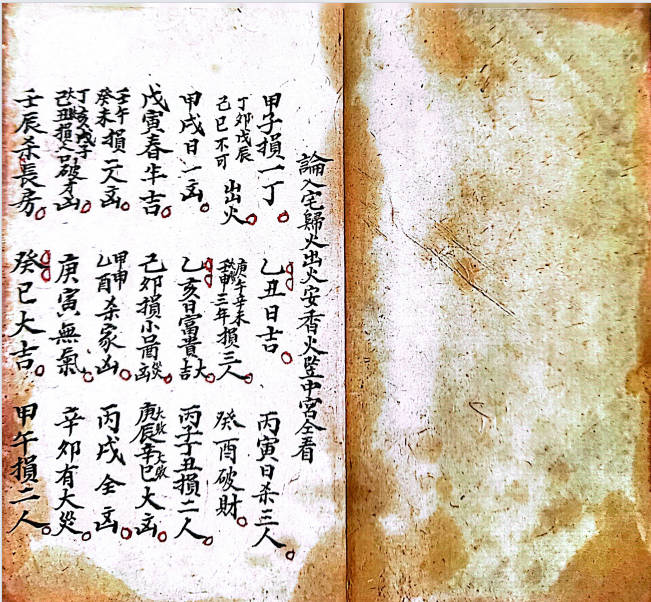 論入宅歸火出火安香火中宮仝看
甲子損一丁 乙丑日吉 丙寅日杀三人
丁卯戊辰己巳不可出火 庚午辛未壬申三年損三人 癸酉破財
甲戌日一凶 乙亥日富貴大吉 丙子丁丑損二人
戊寅春牛吉 己卯損小 凶 庚辰辛巳大凶
壬午癸未損二人凶 甲申乙酉杀家凶 丙戌全凶
丁亥戊子己丑損破才凶 庚寅無氣 辛卯有大災
壬辰杀長房 癸巳大吉 甲午損二人